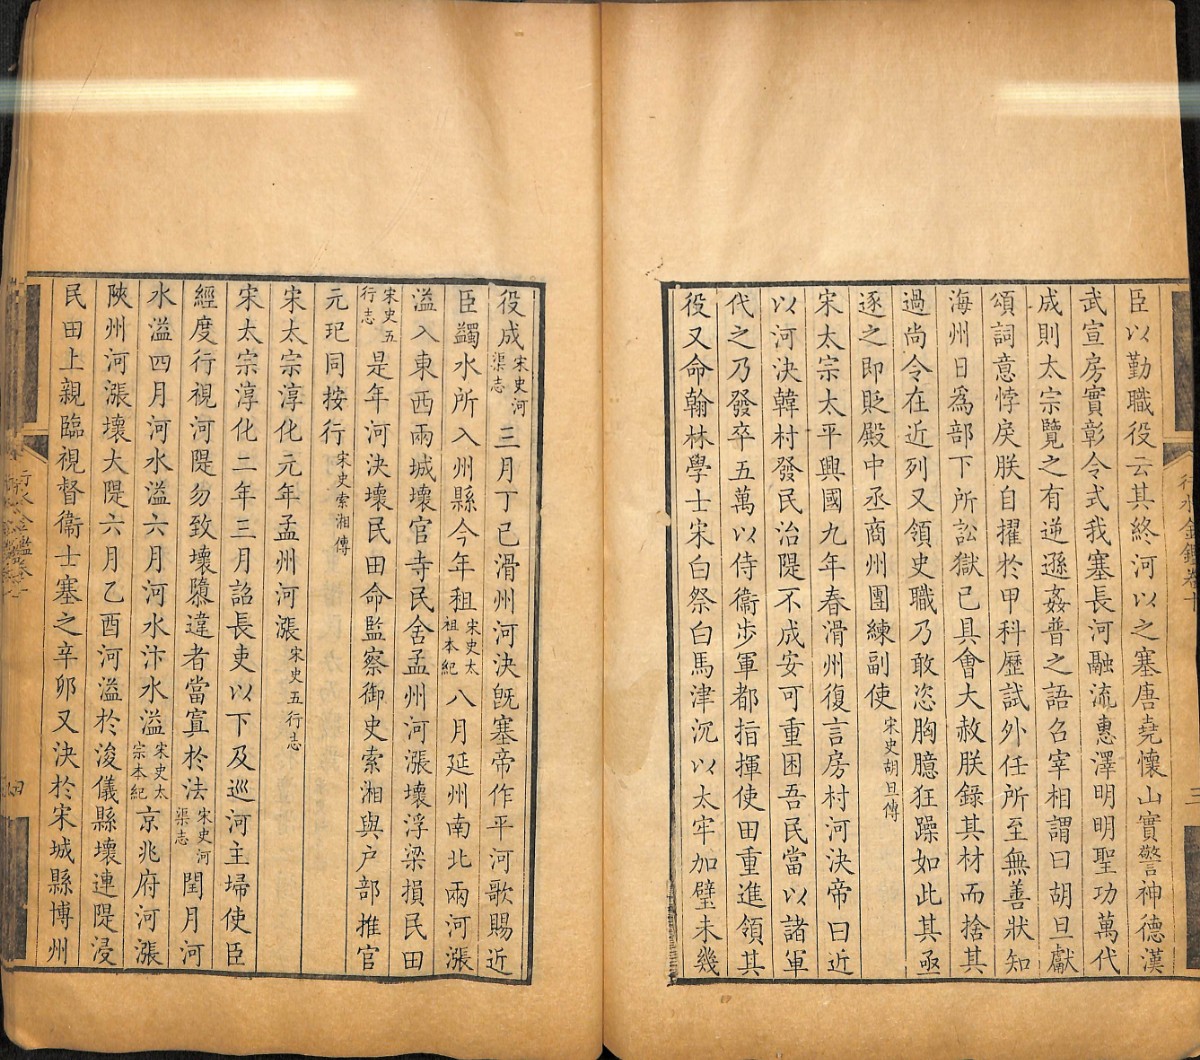 臣以勤職役云其終河以之塞唐堯懷山實警神德漢
武宣房實彰令式我塞長河融流惠澤明明聖功萬代
成則太宗覽之有逆遜姦普之語召宰相謂曰胡旦獻
頌詞意悖戾朕自擢於甲科歷試外任所至無善狀知
海州日爲部下所訟獄已具會大赦朕錄其材而捨其
過尚令在近列又領史職乃敢恣胸臆狂躁如此其亟
逐之即貶殿中丞商州團練副使宋史胡旦傳
宋太宗太平興國九年春滑州復言房村河決帝曰近
以河決韓村發民治隄不成安可重困吾民當以諸軍
代之乃發卒五萬以侍衞步軍都指揮使田重進領其
役又命翰林學士宋白祭白馬津沉以太牢加璧未幾
役成宋史河渠志三月丁巳滑州河決旣塞帝作平河歌賜近
臣蠲水所入州縣今年租宋史太祖本紀八月延州南北兩河漲
溢入東西兩城壞官寺民舍孟州河漲壞浮梁損民田
宋史五行志是年河決壞民田命監察御史索湘與户部推官
元玘同按行宋史索湘傳
宋太宗淳化元年孟州河漲宋史五行志
宋太宗淳化二年三月詔長吏以下及巡河主埽使臣
經度行視河隄勿致壞隳違者當寘於法宋史河渠志閏月河
水溢四月河水溢六月河水汴水溢宋史太宗本紀京兆府河漲
陝州河漲壞大隄六月乙酉河溢於浚儀縣壞連隄浸
民田上親臨視督衞士塞之辛卯又決於宋城縣博州
行水金鑑卷十
三
四